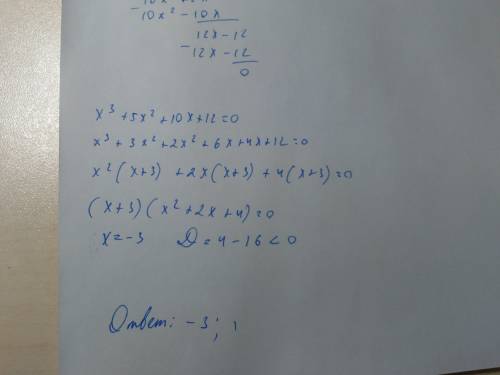 - 10x² - 10x
12x - 12
- 12x - 12
0
x³ + 5x² + 10x + 12 = 0
x³ + 3x² + 2x² + 6x + 4x + 12 = 0
x² (x+3) + 2x (x+3) + 4 (x+3) = 0
(x+3) (x² + 2x + 4) = 0
x = -3 D = 4 - 16 < 0
Ответ: -3; 1